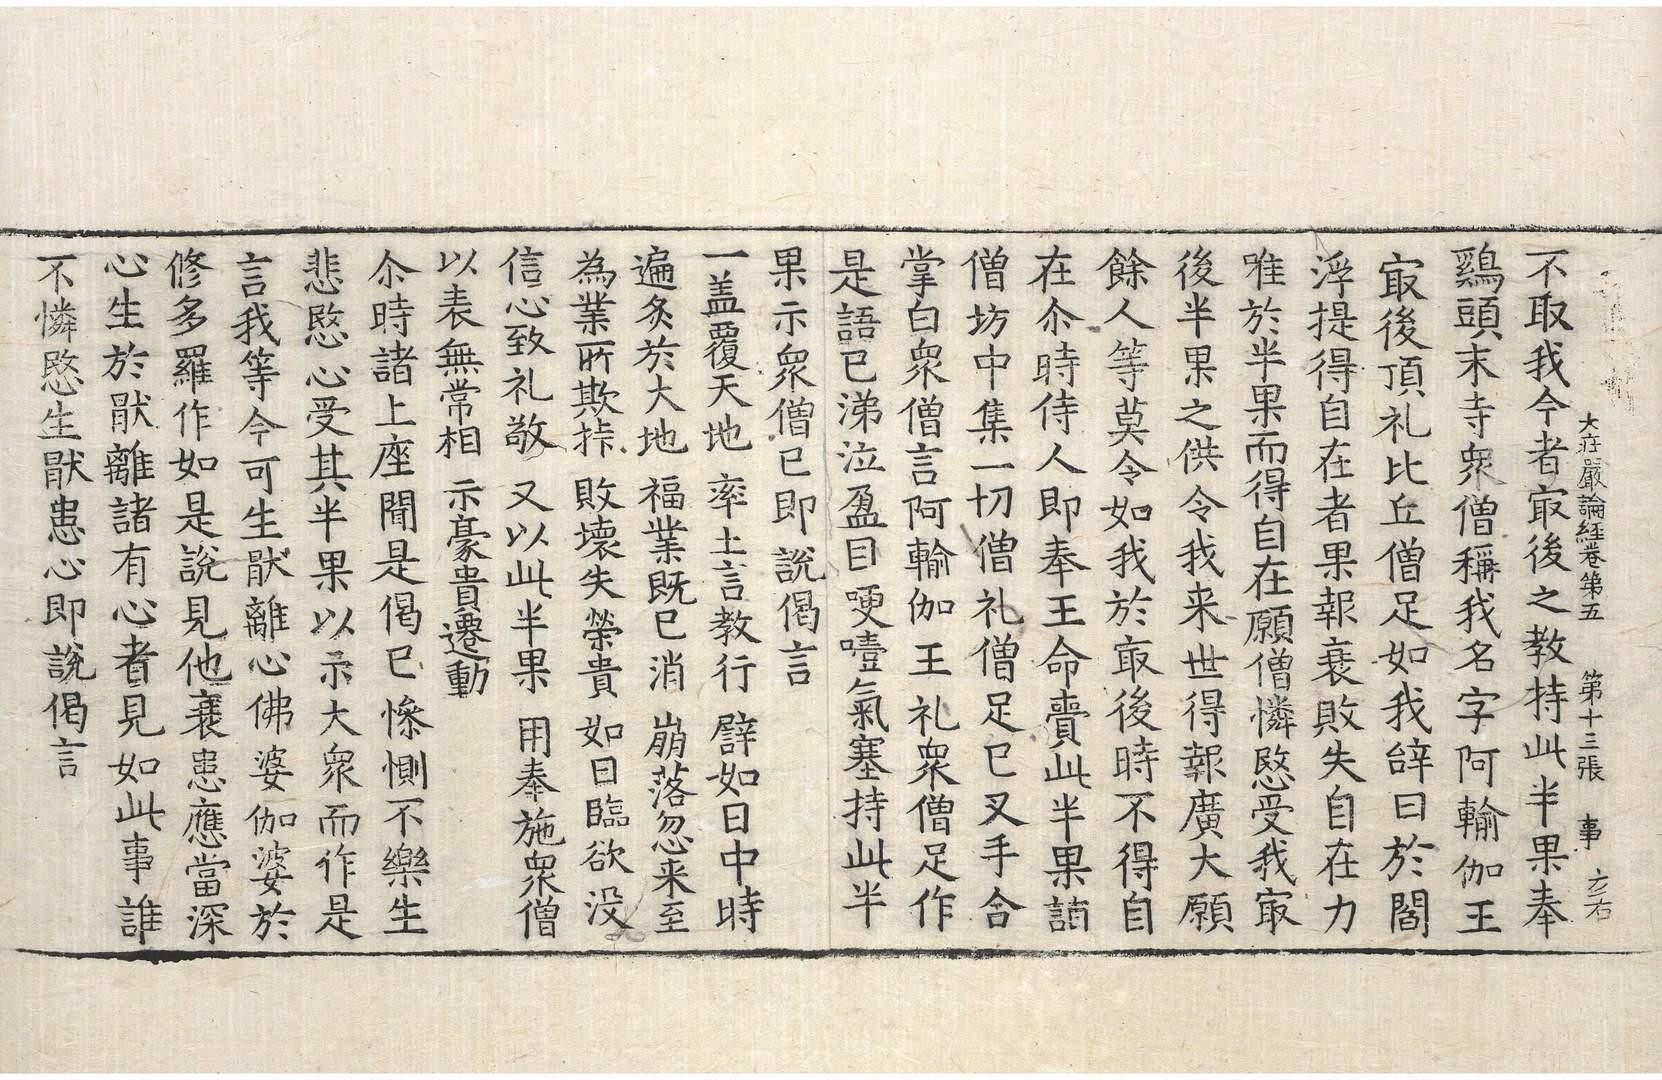 大莊嚴論經卷第五 第十三張 事 玄右
不取我今者㝡後之教持此半果奉
鷄頭末寺衆僧稱我名字阿輸伽王
㝡後頂礼比丘僧足如我辝曰於閻
浮提得自在者果報衰敗失自在力
唯於半果而得自在願僧憐愍受我㝡
後半果之供令我来世得報廣大願
餘人等莫令如我於㝡後時不得自
在尒時侍人即奉王命賷此半果詣
僧坊中集一切僧礼僧足已叉手合
掌白衆僧言阿輸伽王礼衆僧足作
是語已涕泣盈目哽噎氣塞持此半
果示衆僧已即說偈言
一盖覆天地 率土言教行 譬如日中時
遍炙於大地 福業既已消 崩落忽来至
為業所欺㧻 敗壞失榮貴 如日臨欲没
信心致礼敬 又以此半果 用奉施衆僧
以表無常相 示豪貴遷動
尒時諸上座聞是偈已慘惻不樂生
悲愍心受其半果以示大衆而作是
言我等今可生猒離心佛婆伽婆於
修多羅作如是說見他衰患應當深
心生於猒離諸有心者見如此事誰
不憐愍生猒患心即說偈言